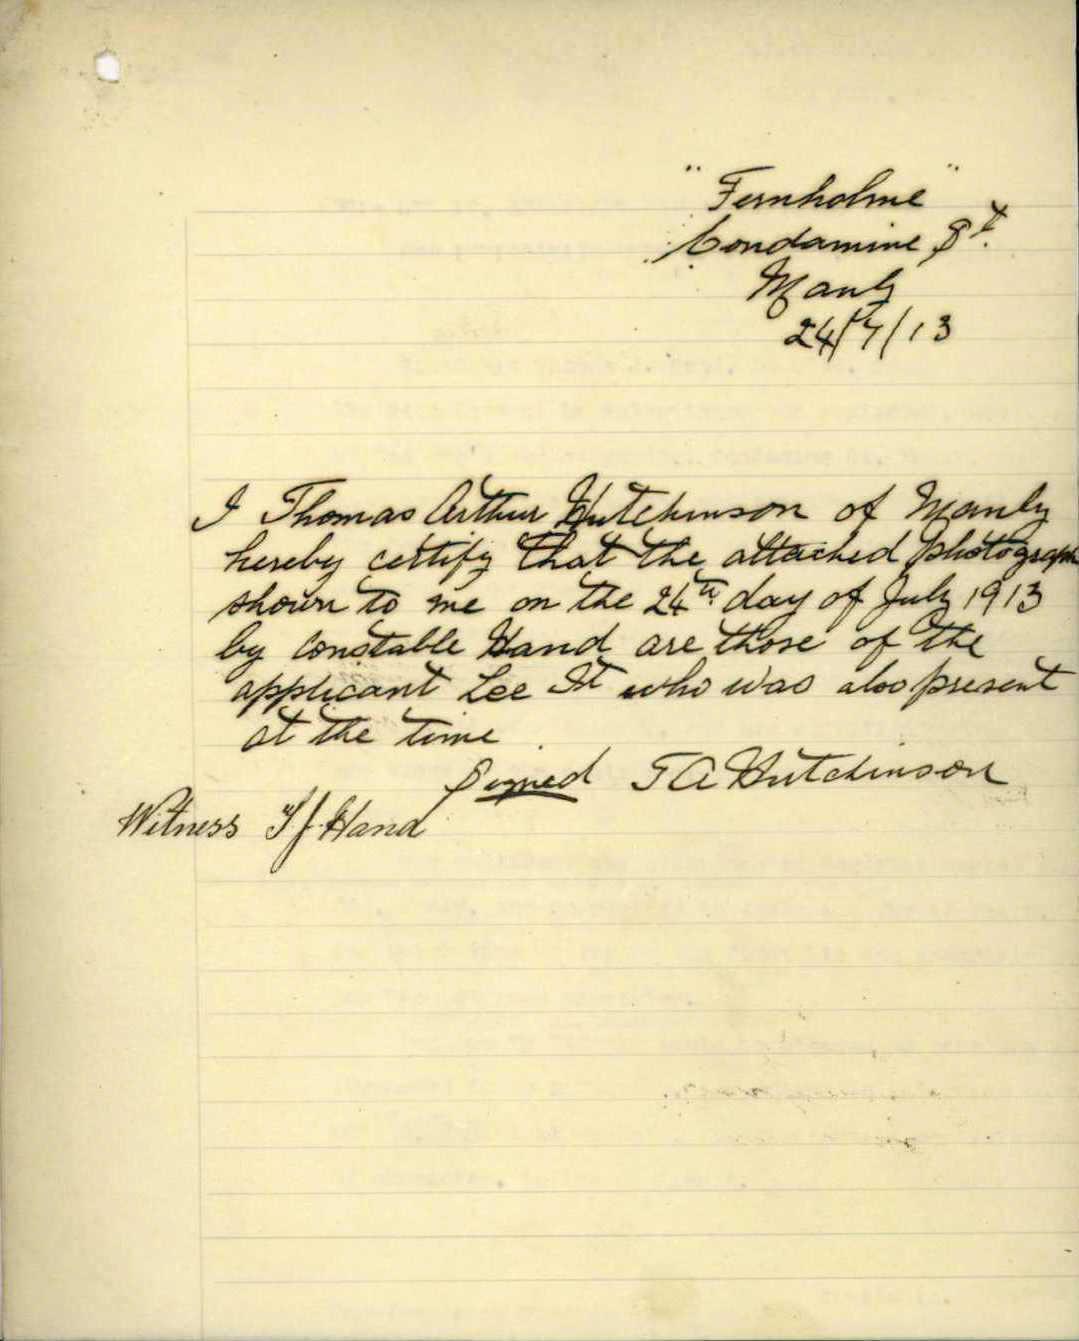 "Fernholme"
Condamine St.
Manly
24/7/13
I Thomas Arthur Hutchinson of Manly
hereby certify that the attached photograph
shown to me on the 24th day of July 1913
by Constable Hand are those of the
applicant Lee It who was also present
at the time.
Signed T A Hutchinson
Witness T J Hand